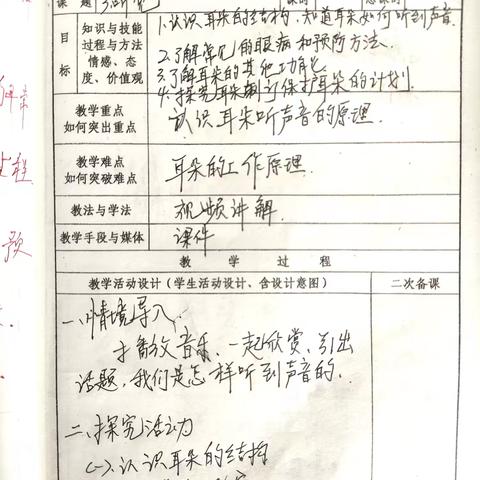 课 题
知识与技能
过程与方法
情感、态
度、价值观
目
标
1.认识耳朵的结构,知道耳朵如何听到声音.
2.了解常见的眼病和预防方法.
3.了解耳朵的其他功能.
4.探究耳朵制订保护耳朵的计划.
教学重点
如何突出重点
认识耳朵听声音的原理.
教学难点
如何突破难点
耳朵的工作原理.
教法与学法
视频讲解.
教学手段与媒体
课件
教 学 过 程
教学活动设计(学生活动设计、含设计意图)
二次备课
一、情境导入.
播放音乐、一起欣赏、引出
话题,我们是怎样听到声音的.
二、探究活动
(一)、认识耳朵的结构